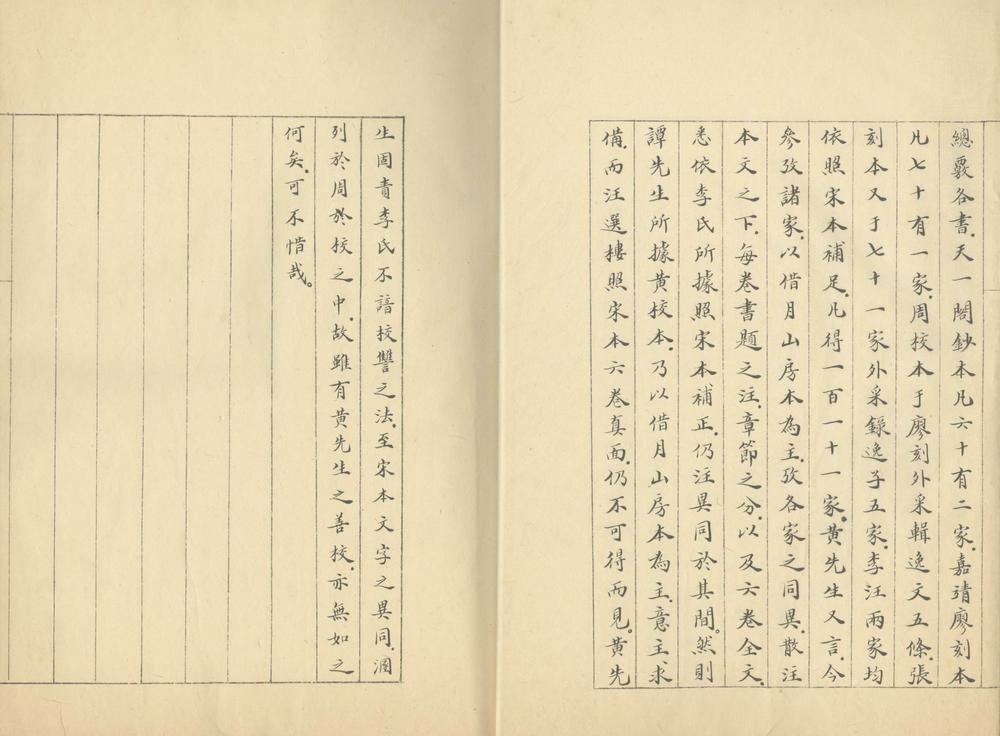 總覈各書.天一閣鈔本凡六十有二家.嘉靖廖刻本
凡七十有一家.周校本于廖刻外采輯逸文五條.張
刻本又于七十一家外采錄逸子五家.李汪兩家均
依照宋本補足.凡得一百一十一家。黃先生又言.今
參攷諸家.以借月山房本為主.攷各家之同異.散注
本文之下.每卷書題之注.章節之分.以及六卷全文.
悉依李氏所據照宋本補正.仍注異同於其間。然則
譚先生所據黃校本.乃以借月山房本為主.意主求
備.而汪選樓照宋本六卷真面.仍不可得而見。黃先
生固責李氏不諳校讐之法.至宋本文字之異同.溷
列於周於校之中.故雖有黃先生之善校.亦無如之
何矣.可不惜哉。